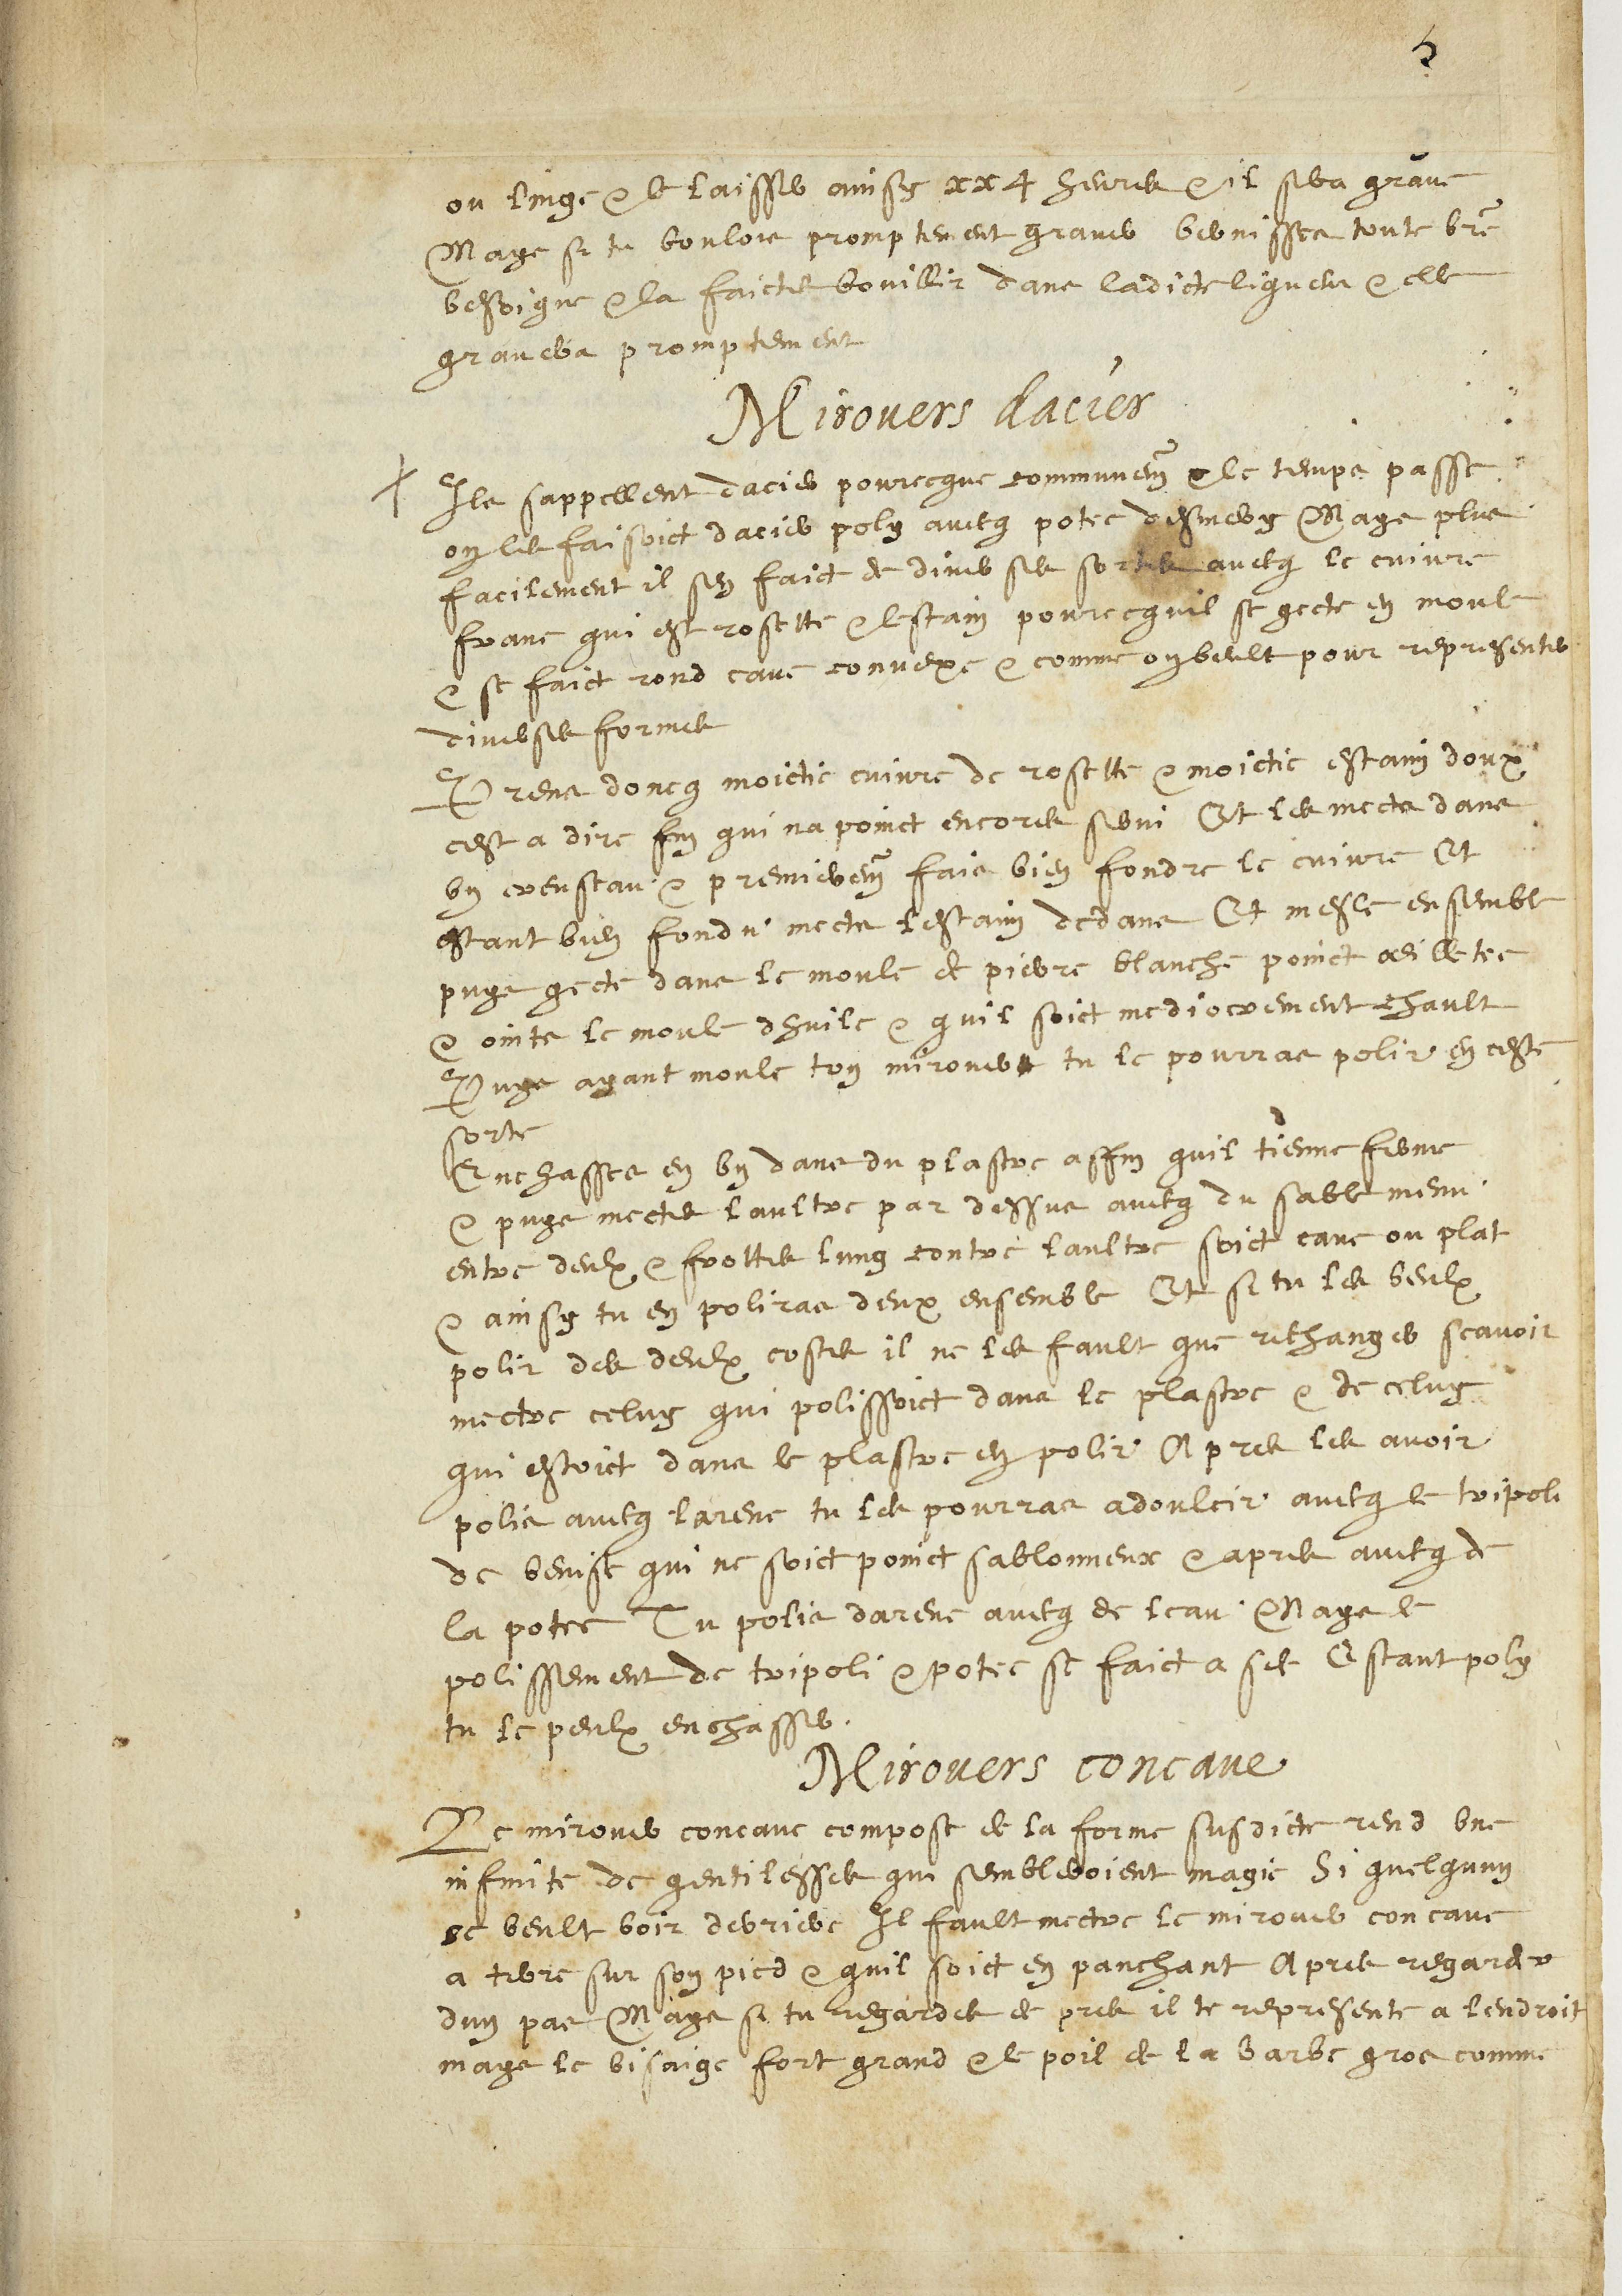 5
ou linge & le laisser ainsy xx4 heures & il sera gravé
Mays si tu voulois promptement graver vernisses toute vre
besoigne & la faictes bouillir dans ladicte liqueur & elle
gravera promptement
Mirouers dacier
Ils sappellent dacier pourceque communem & le temps passé
on les faisoict dacier poly avecq potee desmery Mays plus
facilement il sen faict de diverses sortes avecq le cuivre
franc qui est rosette & lestain pourcequil se gecte en moule
& se faict rond cave convexe & comme on veult pour representer
diverses formes
Prens doncq moictié cuivre de rosette & moictié estain doux
cest a dire fin qui na poinct encores servi Et les mects dans
un creuset au & premierem fais bien fondre le cuivre Et
estant bien fondu mects lestain dedans Et mesle ensemble
puys gecte dans le moule de pierre blanche poinct œilletee
& oints le moule dhuile & quil soict mediocrement chault
Puys ayant moulé ton mirouer tu le pourras polir en ceste
sorte
Enchasses en un dans du plastre affin quil tienne ferme
& puys mectes laultre par dessus avecq du sable menu
entre deulx & frottes lung contre laultre soict cave ou plat
& ainsy tu en poliras deux ensemble Et si tu les veulx
polir des deulx costés il ne les fault que rechanger scavoir
mectre celuy qui polissoict dans le plastre & de celuy
qui estoict dans le plastre en polir Apres les avoir
polis avecq larene tu les pourras adoulcir avecq le tripoli
de Venise qui ne soict poinct sablonneux & apres avecq de
la potee Tu polis darene avecq de leau Mays le
polissement de tripoli & potee se faict a sec Estant poly
tu le peulx enchasser.
Mirouers concave
Le mirouer concave composé de la forme susdicte rend une
infinite de gentilesses qui sembleroient magie Si quelquun
se veult voir derriere Il fault mectre le mirouer concave
a terre sur son pied & quil soict en panchant Apres regarder
dun pas Mays si tu regardes de pres il te represente a lendroit
mays le visaige fort grand & le poil de la barbe gros comme